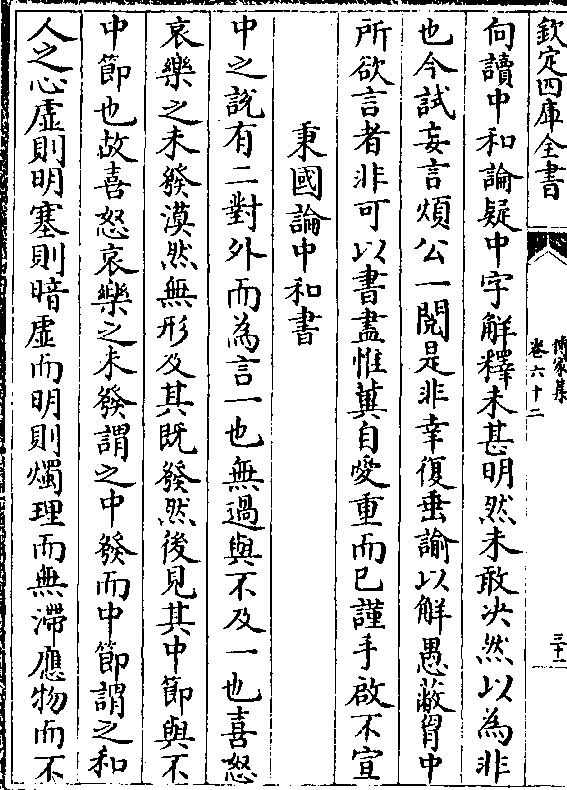 欽定四庫全書
傳家集
卷六十二
三十一
向讀中和論疑中字解釋未甚明然未敢决然以為非
也今試妄言煩公一閲是非幸復垂諭以解愚蔽胷中
所欲言者非可以書盡惟冀自愛重而已謹手啟不宣
秉國論中和書
中之說有二對外而為言一也無過與不及一也喜怒
哀樂之未發漠然無形及其既發然後見其中節與不
中節也故喜怒哀樂之未發謂之中發而中節謂之和
人之心虛則明塞則暗虛而明則燭理而無滯應物而不